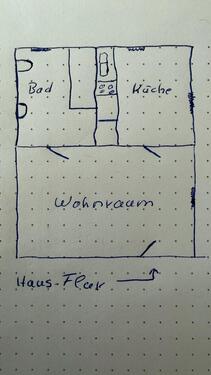 Bad Küche
Wohnraum
Haus-Flur